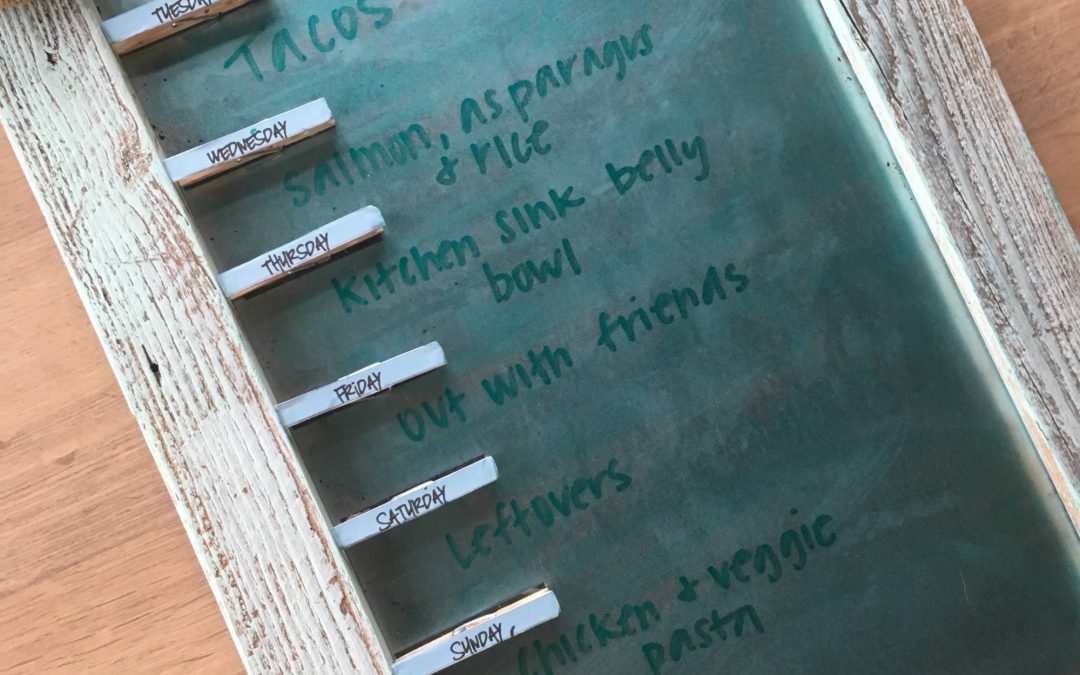 TUESDAY
Tacos
WEDNESDAY
salmon, asparagus
& rice
THURSDAY
Kitchen sink belly
bowl
FRIDAY
out with friends
SATURDAY
Leftovers
SUNDAY
chicken + veggie
pasta